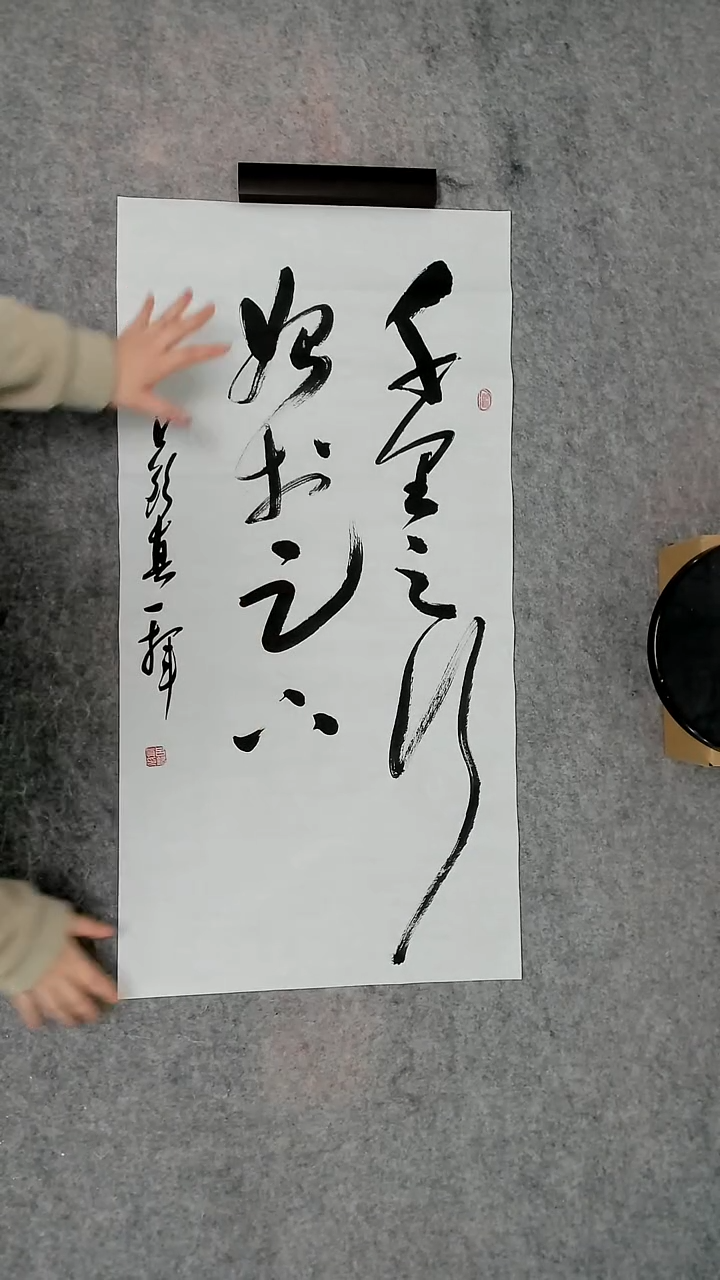 千里之行
始於足下
真一揮